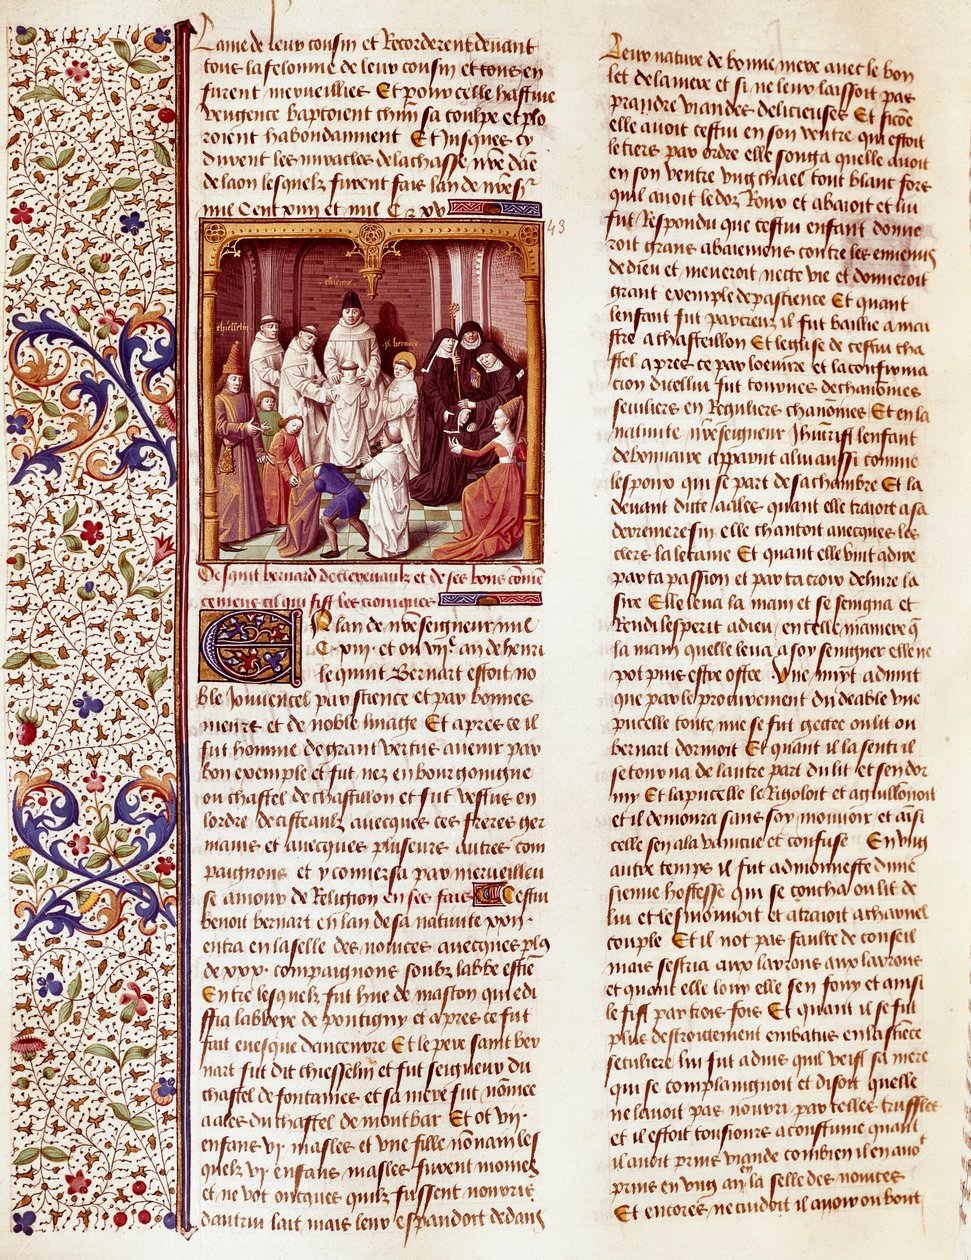 Lame de leur cousin et Recorderent devant
tous la felonnie de leur cousin et tous en
furent merveillies Et pour celle hastive
vengence baptoient chm̄ sa coulpe et plo
roient habondamment Et Jusques cy
durent les miracles de la chasse nr̄e dāe
de laon lesquelz furent fais lan de nr̄e sr̄
mil Cent xiiii et mil C et xv
43
estienne
thiesselin
s. bernard
De saint bernard de clerevaulx et de ses bons cōme
cemens cil qui fist les croniques
En lan de nr̄e seigneur mil
C. xiii. et ou vii.e an de henri
le quint Bernart estoit no
ble Jouvencel par science et par bonnes
meurs et de noble linage Et apres ce il
fut homme de grant vertus avenir par
bon exemple et fut nez en bourgongne
ou chastel de chastillon et fut vestus en
lordre de cisteaulx avecques ces freres ger
mains et avecques plusieurs autres com
paignons et y conversa par merveilleu
se amour de Religion en ses fais Cestui
benoit bernart en lan de sa nativite xxii.
entra en la selle des novices avecques plus
de xxx. compaignons soubz labbe estieñ
Entre lesquelz fut hue de mascon qui edi
ffia labbeye de pontigny et apres ce fut
fait evesque dancerre Et le pere saint ber
nart fut dit thiesselin et fut seigneur du
chastel de fontaines et sa mere fut nōmee
aales du chastel de montbar Et ot vii.
enfans vi. masles et une fille nōmam les
quelx vi enfans masles furent moines
et ne vot oncques quilz fussent nourris
dautrui lait mais leur espandoit dedans
leur nature de bonne mere avec le bon
let de la mere et si ne leur laissoit pas
prandre viandes delicieuses Et sicōe
elle avoit cestui en son ventre qui estoit
le tiers par ordre elle songa quelle avoit
en son ventre ung chael tout blanc fors
quil avoit le doz Roux et abaioit et lui
fut Respondu que cestui enfant donne
roit grans abaiemens contre les ennemis
de dieu et meneroit nette vie et donneroit
grant exemple de pascience Et quant
lenfant fut parcreuz il fut baillie a mai
stre a chasteillon Et leglise de cestui cha
stel apres ce par loeuvre et la confirma
cion dicellui fut tournes de chanoines
seculiers en Reguliers chanōnes Et en la
nativite nr̄e seigneur Jhucrist lenfant
de bonnaire apparut a lui aussi comme
lespoux qui se part de sa chambre Et la
devant dicte aales quant elle traioit a sa
derreniere fin elle chantoit avecques les
clers la letanie Et quant elle vint a dire
par ta passion et par ta croix delivre la
sire Elle leva la main et se seigna et
Rendi lesperit a dieu en telle maniere q̄
la main quelle leva a soy seigner elle ne
pot puis estre ostee Une nuyt advint
que par le prouvement du deable une
pucelle toute nue se fut gectee ou lit ou
bernart dormoit Et quant il la senti il
se tourna de lautre part du lit et sendor
my Et la pucelle le Rigoloit et aguillonnoit
et il demoura sans soy mouvoir et ainsi
celle sen ala vaincue et confuse En ung
autre temps il fut admonneste dune
sienne hostesse qui se coucha ou lit de
lui et le semonnoit et atraioit a charnel
couple Et il not pas faulte de conseil
mais sescria aux larrons aux larrons
et quant elle louy elle sen fouy et ainsi
le fist par trois fois Et quant il se fut
plus destroictement embatus en la science
seculiere lui fut advis quil veist sa mere
qui se complaignoit et disoit quelle
ne lavoit pas nourri par telles truffles
et il estoit tousiours acoustume quant
il avoit prins viande combien il en avoit
prins en ung an en la selle des novices
Et encores ne cuidoit il avoir ou bout